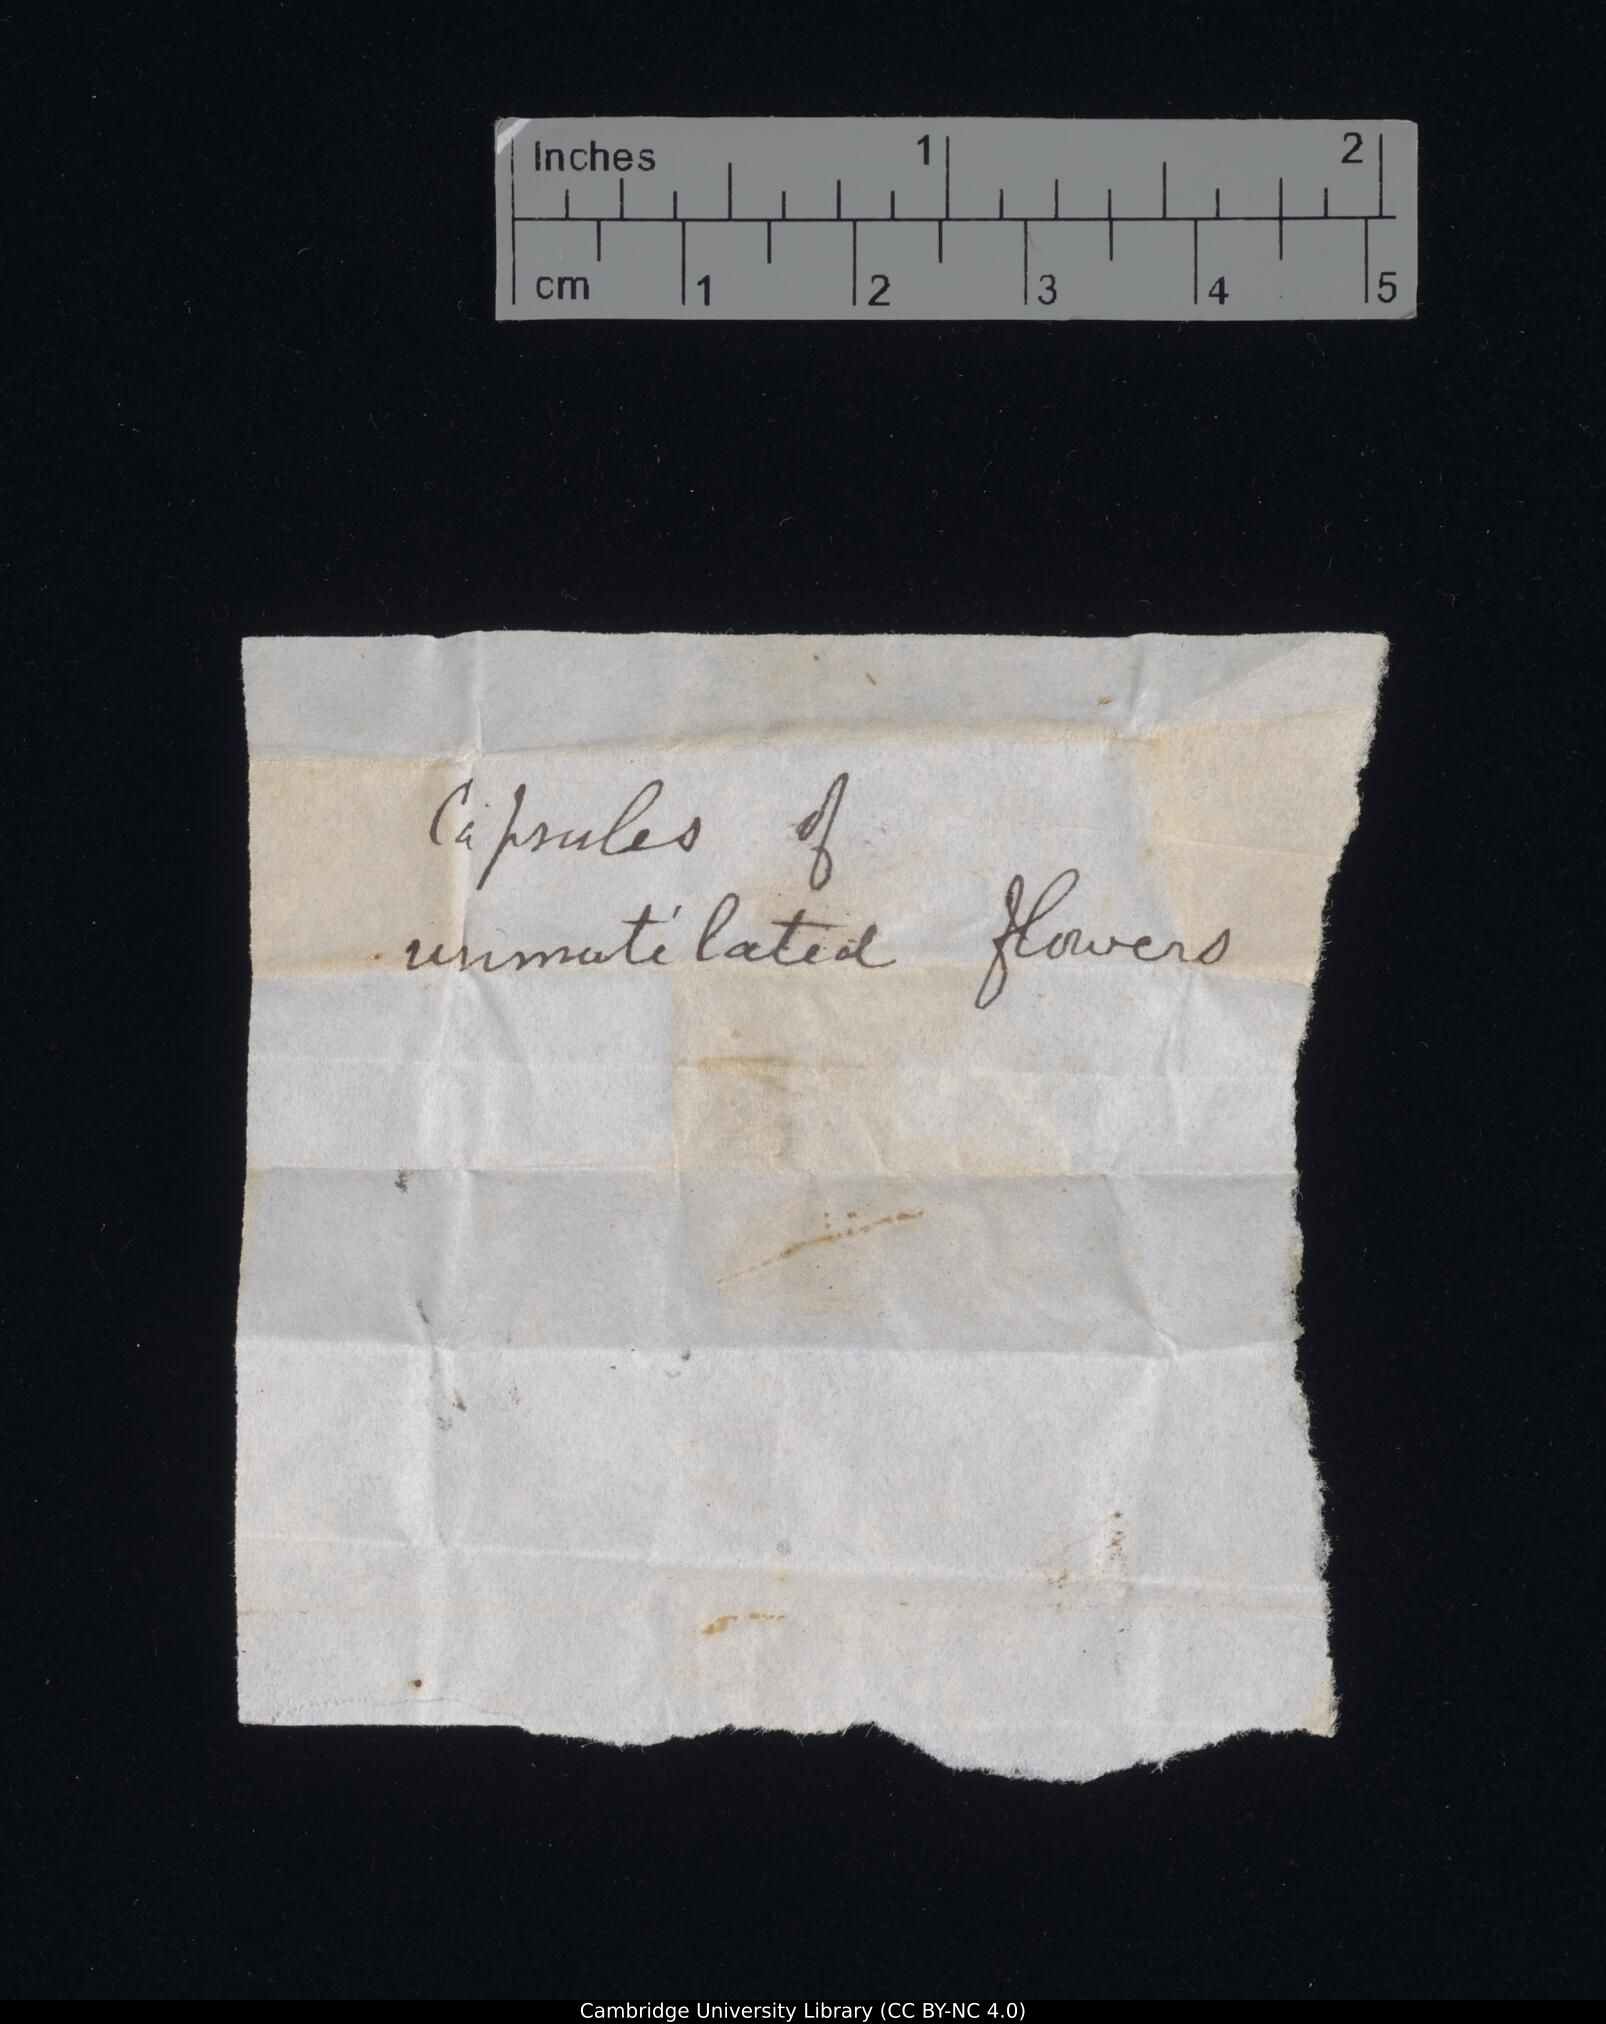 Inches 1 2
cm 1 2 3 4 5
Capsules of
unmutilated flowers
Cambridge University Library (CC BY-NC 4.0)